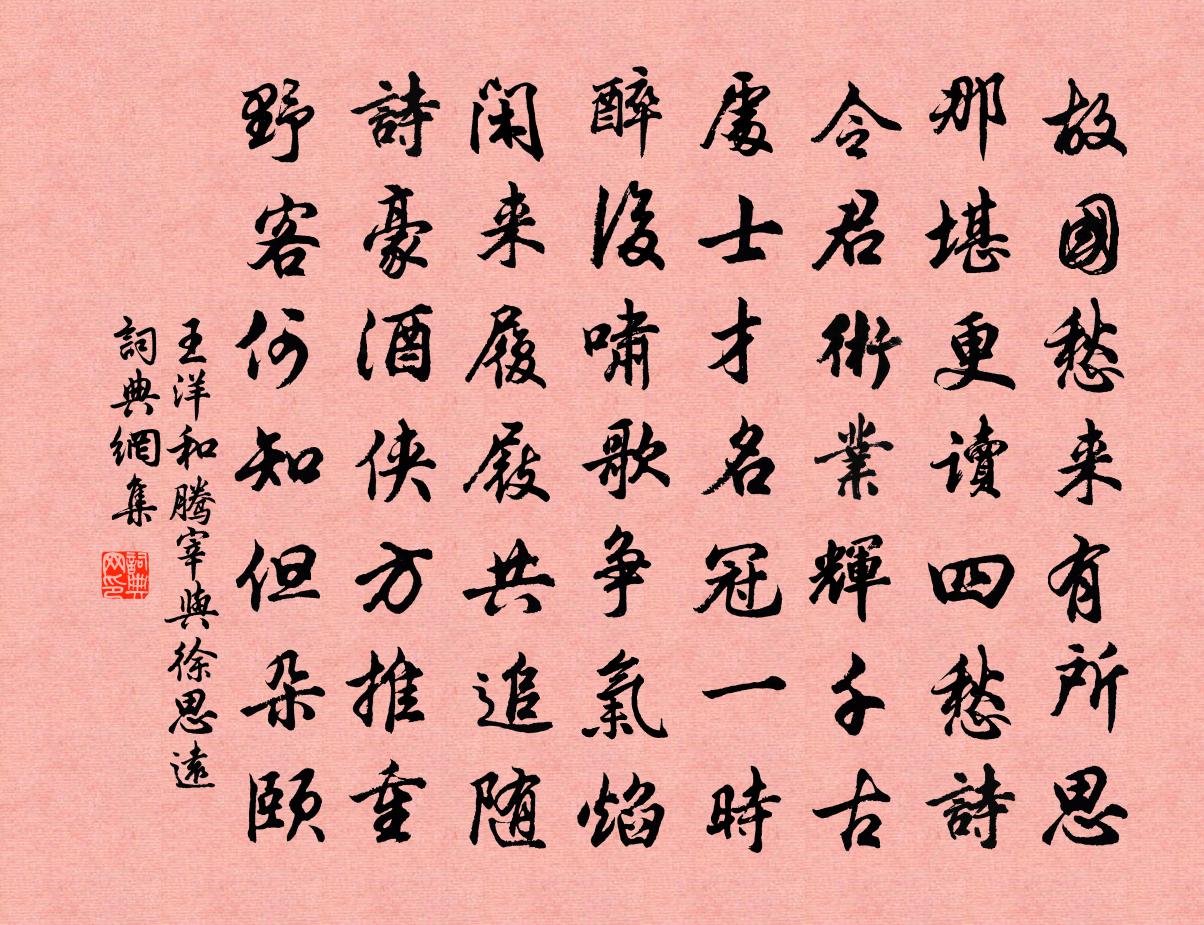 故國愁来有所思
那堪更讀四愁詩
令君術業輝千古
處士才名冠一時
醉後嘯歌争氣焰
閑来履屐共追随
詩豪酒俠方推重
野客何知但朵頤
王洋和騰宰與徐思遠
詞典網集
詞典
网印